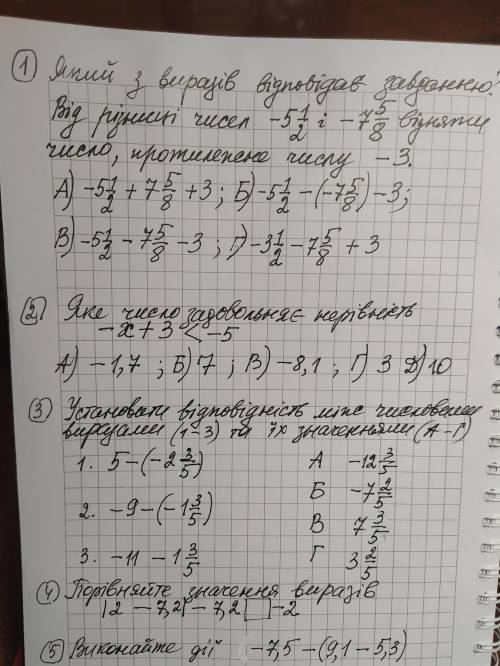 ① Який з виразів відповідає завданню?
Від різниці чисел -5 1/2 і -7 5/8 відняти
число, протилежне числу -3.
А) -5 1/2 + 7 5/8 + 3; Б) -5 1/2 - (-7 5/8) - 3;
В) -5 1/2 - 7 5/8 - 3; Г) -3 1/2 - 7 5/8 + 3
② Яке число задовольняє нерівність
-x + 3 < -5
А) -1,7; Б) 7; В) -8,1; Г) 3 Д) 10
③ Установити відповідність між числовими
виразами (1-3) та їх значеннями (А-Г)
1. 5 - (-2 3/5) А -12 3/5
Б -7 2/5
2. -9 - (-1 3/5)
В 7 3/5
3. -11 - 1 3/5 Г 3 2/5
④ Порівняйте значення виразів
|2 - 7,2| - 7,2 □ -2
⑤ Виконайте дії -7,5 - (9,1 - 5,3)